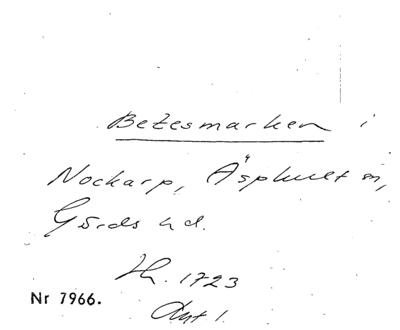 Betesmarken i
Nockarp, Äsphult sn,
Gärds hd.
Th. 1723
Nr 7966.
Avt 1.